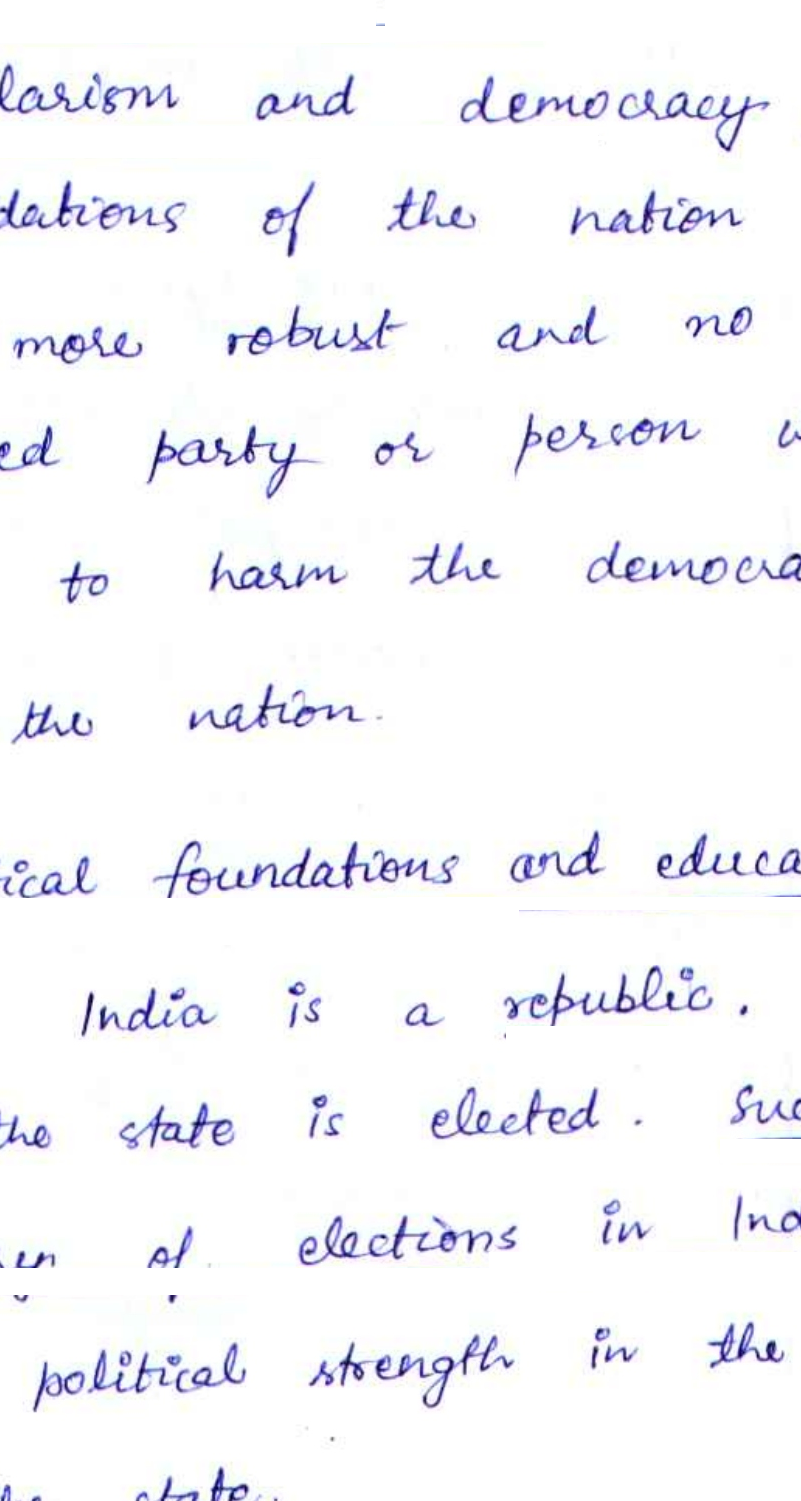 larism and democracy
dations of the nation
more robust and no
ed party or person
to harm the democra
the nation.
ical foundations and educa
India is a republic.
the state is elected. Suc
of elections in Ind
political strength in the
state.